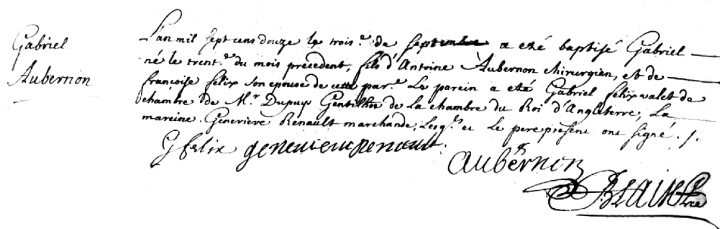 Gabriel
Aubernon
L'an mil sept cens douze le trois.e de septembre a eté baptisé Gabriel
né le trent.e du mois precedent, fils d'Antoine Aubernon chirurgien, et de
francoise felix son epouse de cette par.e Le parein a eté Gabriel felix valet de
chambre de M.r Dupuy Gentilho de La chambre du Roi d'Angleterre, La
mareine Genevieve Renault marchande, Lesq.s et Le pere present ont signé ./.
G felix genevieu renault.
Aubernon